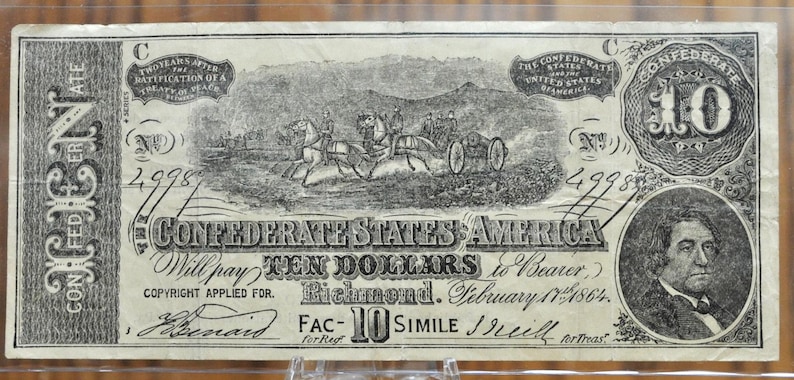 CONFEEDERNATE
TEN
C
C
TWO YEARS AFTER
THE
RATIFICATION OF A
TREATY OF PEACE
BETWEEN
THE CONFEDERATE
STATES
AND THE
UNITED STATES
OF AMERICA.
CONFEDERATE
10
SERIES
No
No
49989
49989
THE
CONFEDERATE STATES OF AMERICA
Will pay TEN DOLLARS to Bearer,
COPYRIGHT APPLIED FOR.
Richmond. February 17th 1864.
FAC-10 SIMILE
for Regr.
for Treasr.